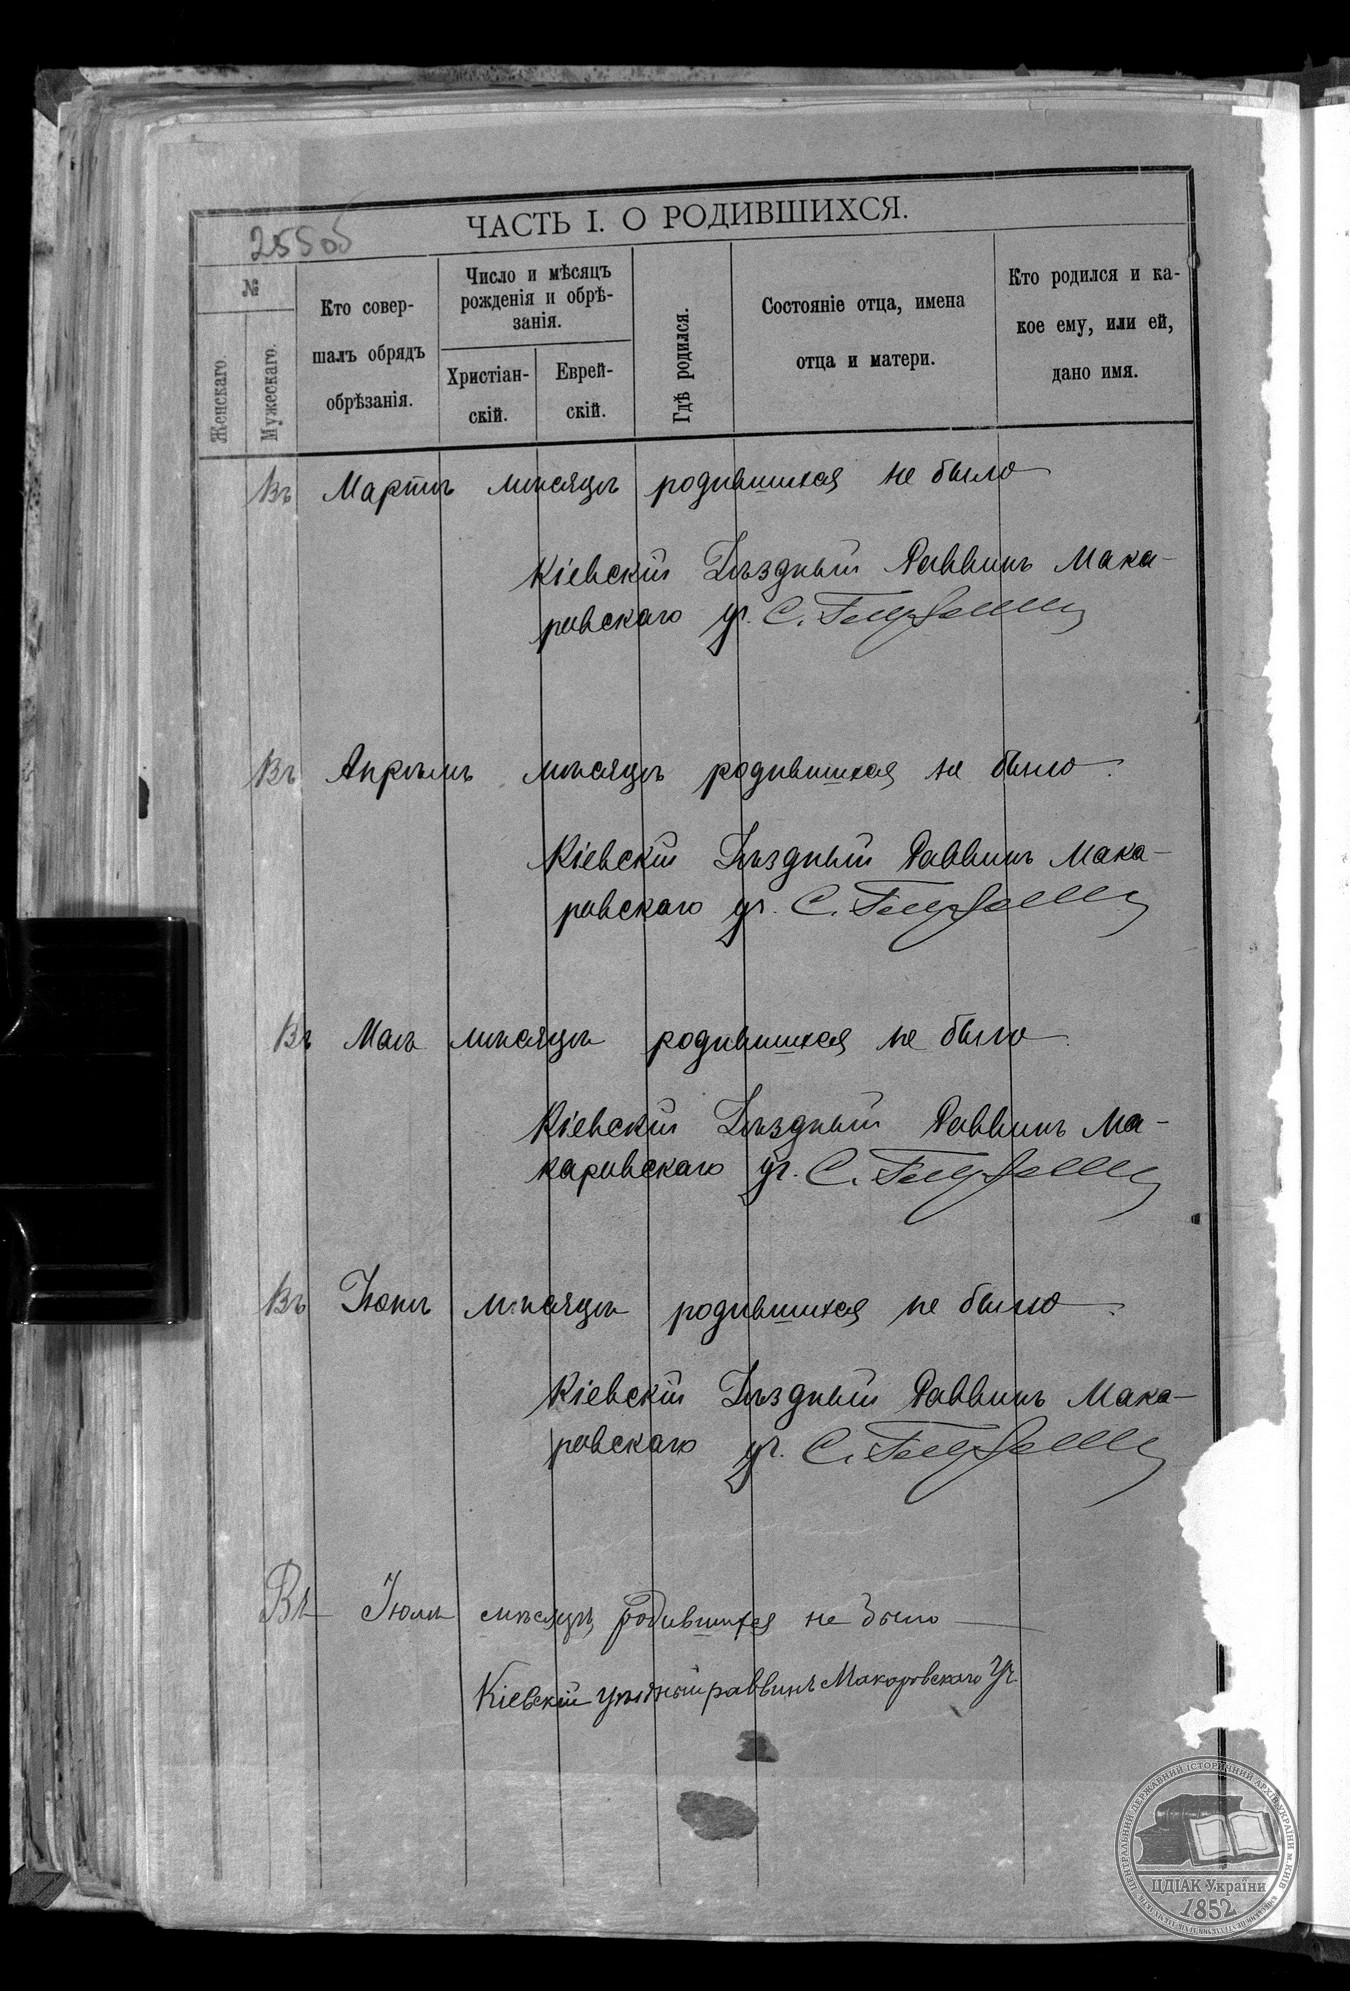 255об
ЧАСТЬ I. О РОДИВШИХСЯ.
№
Женскаго.
Мужескаго.
Кто совер-
шалъ обрядъ
обрѣзанія.
Число и мѣсяцъ
рожденія и обрѣ-
занія.
Христіан-
скій.
Еврей-
скій.
Гдѣ родился.
Состояніе отца, имена
отца и матери.
Кто родился и ка-
кое ему, или ей,
дано имя.
Въ Мартѣ мѣсяцѣ родившихся не было
Кіевскій Уѣздный Раввинъ Мака-
ровскаго уч. С.
Въ Апрѣлѣ мѣсяцѣ родившихся не было.
Кіевскій Уѣздный Раввинъ Мака-
ровскаго уч. С.
Въ Маѣ мѣсяцѣ родившихся не было.
Кіевскій Уѣздный Раввинъ Ма-
каровскаго уч. С.
Въ Іюнѣ мѣсяцѣ родившихся не было.
Кіевскій Уѣздный Раввинъ Мака-
ровскаго уч. С.
Въ Іюлѣ мѣсяцѣ родившихся не было
Кіевскій уѣздный раввинъ Макаровскаго Уч.
ЦЕНТРАЛЬНИЙ ДЕРЖАВНИЙ ІСТОРИЧНИЙ АРХІВ УКРАЇНИ М. КИЇВ
ЦДІАК України
1852